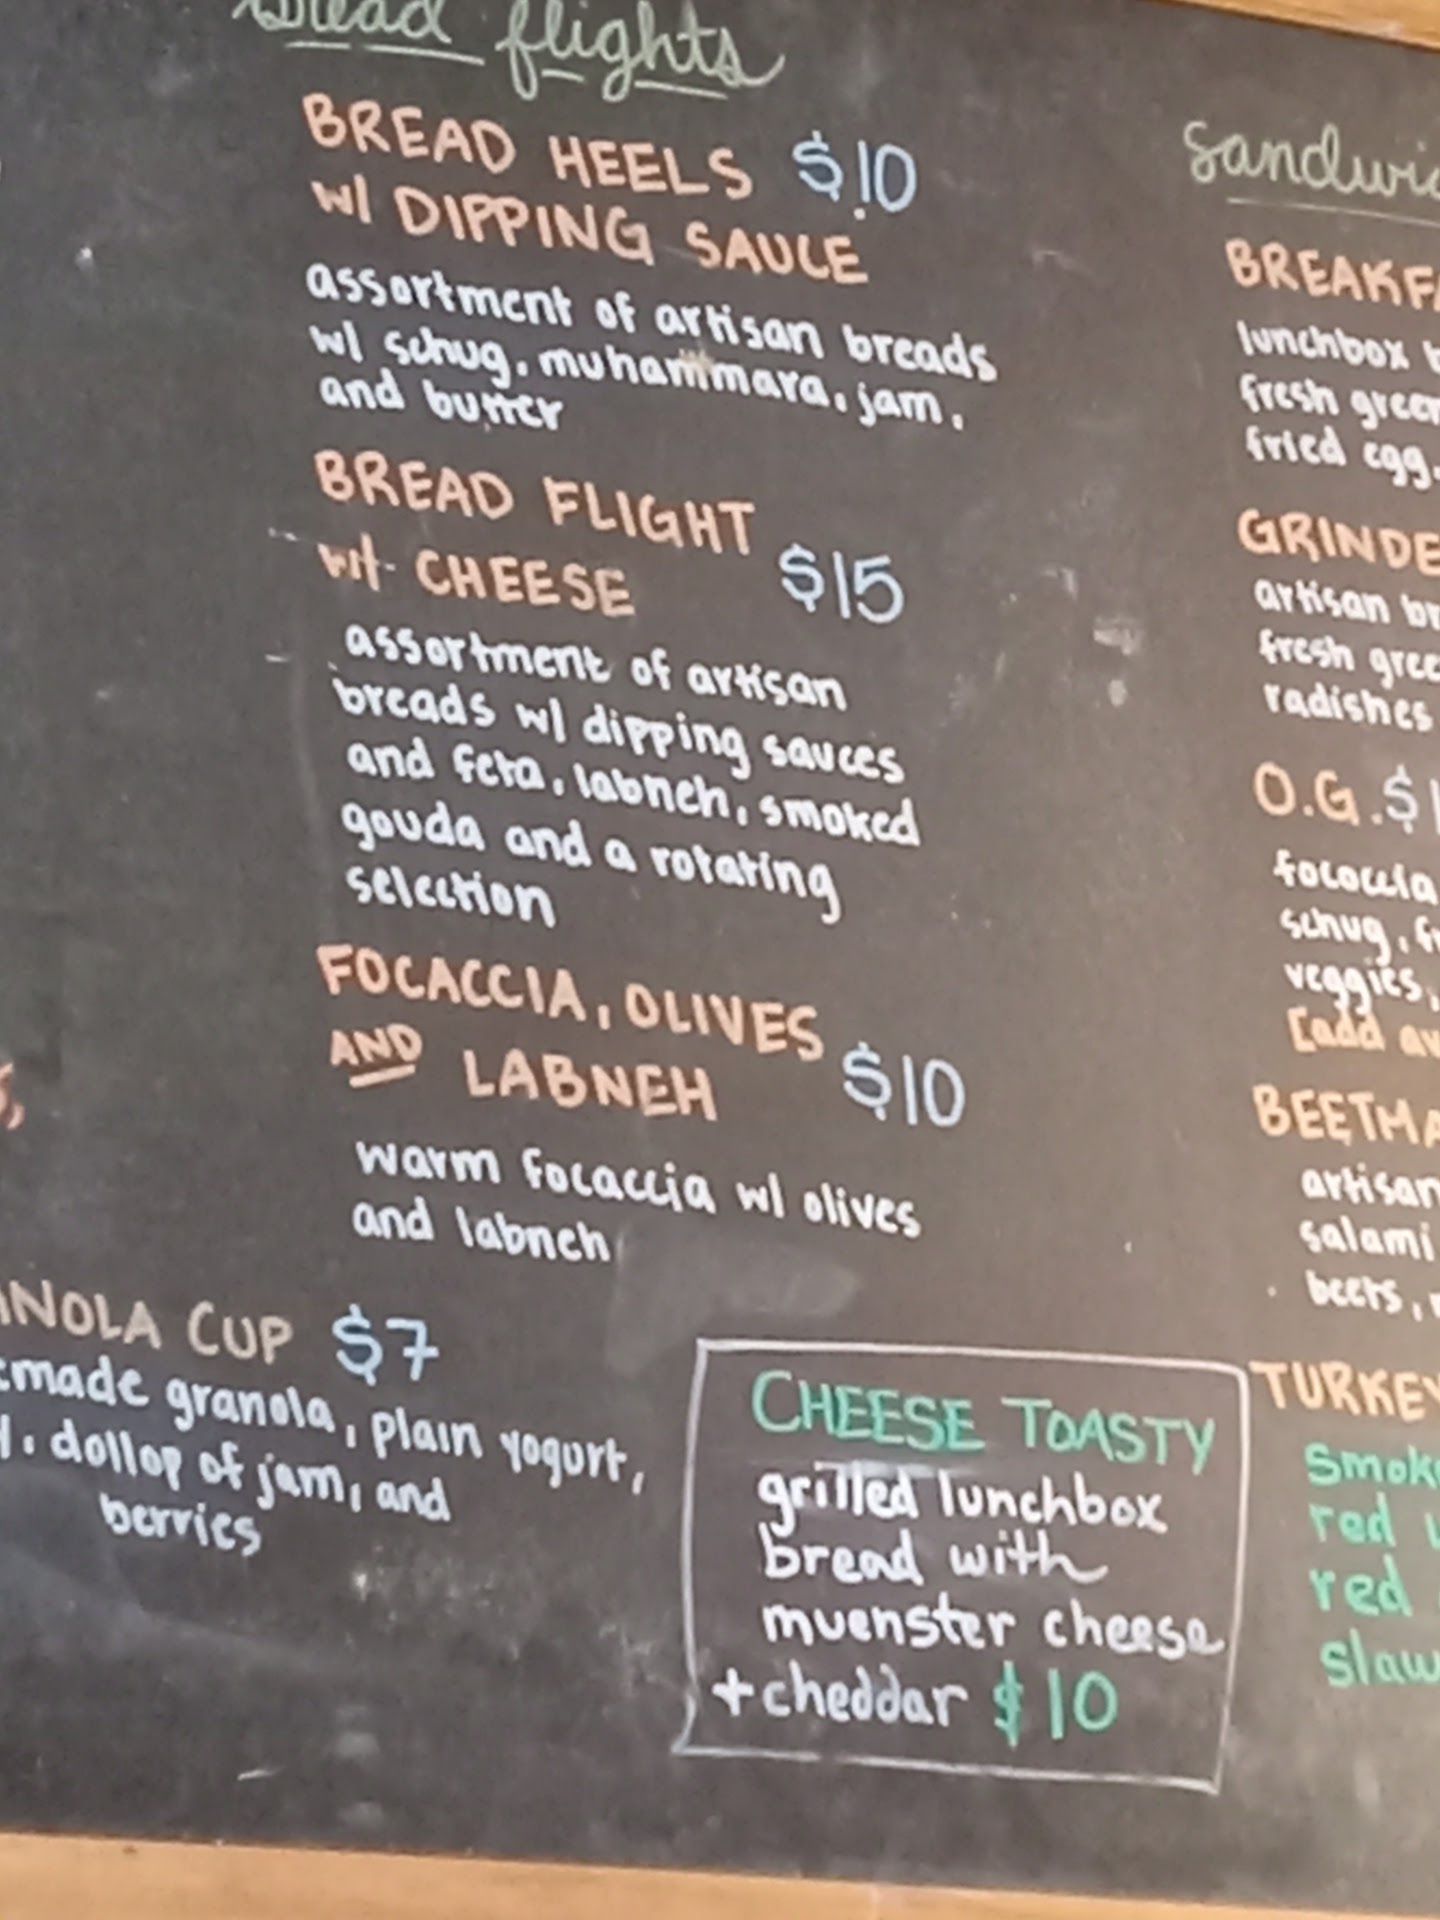 Bread flights
BREAD HEELS $10
w/ DIPPING SAUCE
assortment of artisan breads
w/ schug, muhammara, jam,
and butter
BREAD FLIGHT
w/ CHEESE $15
assortment of artisan
breads w/ dipping sauces
and feta, labneh, smoked
gouda and a rotating
selection
FOCACCIA, OLIVES
AND LABNEH $10
warm focaccia w/ olives
and labneh
ANOLA CUP $7
emade granola, plain yogurt,
dollop of jam, and
berries
CHEESE TOASTY
grilled lunchbox
bread with
muenster cheese
+cheddar $10
sandwic
BREAKFA
lunchbox b
fresh green
fried egg,
GRINDE
artisan br
fresh gree
radishes
O.G. $1
fococcia
schug, fr
veggies,
[add av
BEETMA
artisan
salami
beets,
TURKEY
Smok
red
red
slaw